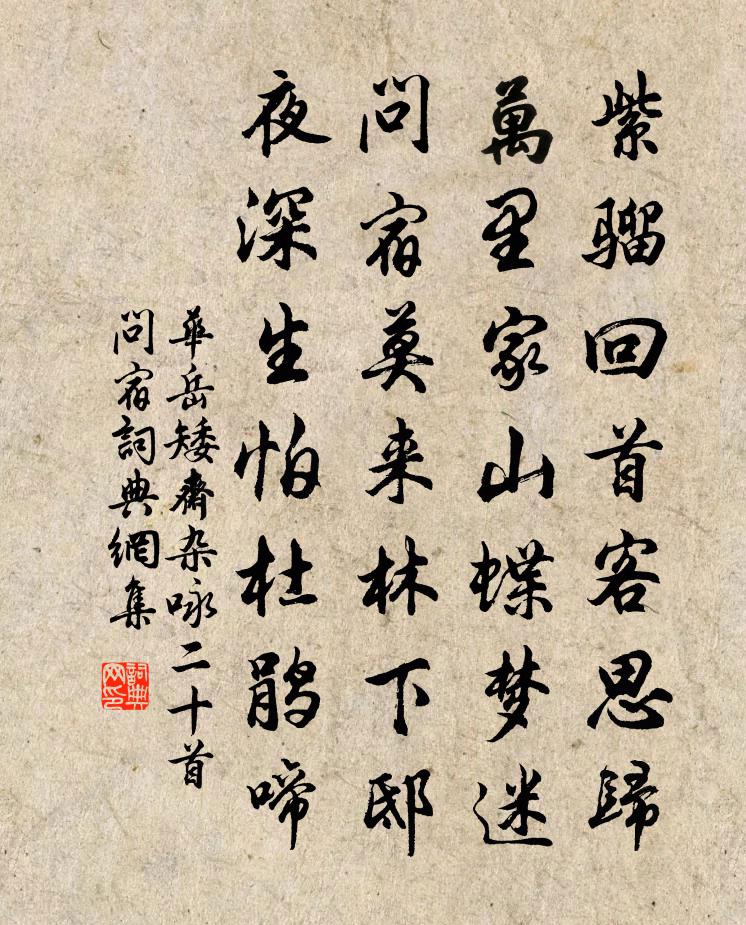 紫骝回首客思歸
萬里家山蝶梦迷
問宿莫来林下邸
夜深生怕杜鹃啼
華岳矮齋杂咏二十首
問宿詞典網集
詞典网印